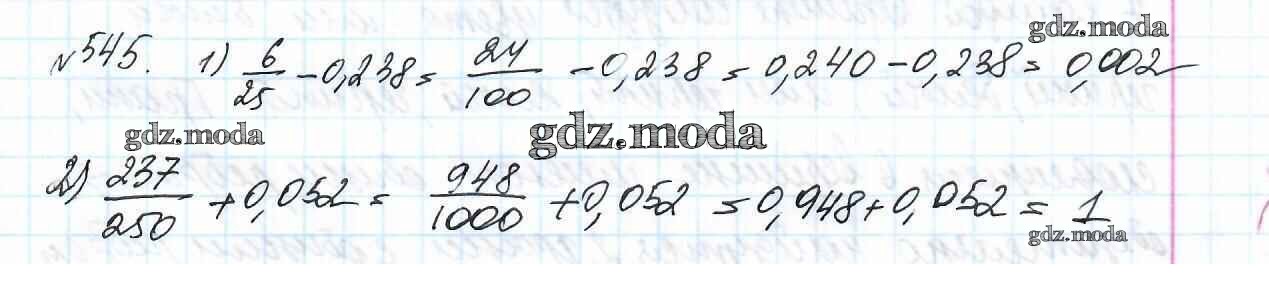 gdz.moda
№545. 1) 6/25 - 0,238 = 24/100 - 0,238 = 0,240 - 0,238 = 0,002
gdz.moda gdz.moda
2) 237/250 + 0,052 = 948/1000 + 0,052 = 0,948 + 0,052 = 1
gdz.moda